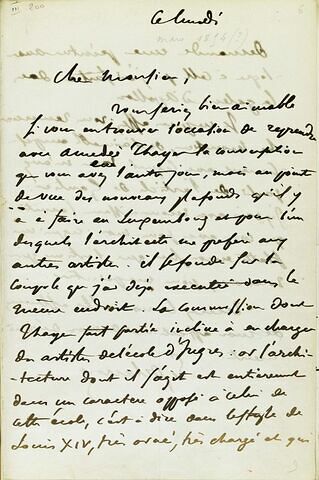 III 200
6
ce lundi
mars 1854 (?)
Cher Monsieur,
vous seriez bien aimable
si vous en trouvez l'occasion de reprendre
avec amedée Thayer la conversation
que vous avez eue l'autre jour, mais au point
de vue des nouveaux plafonds qu'il y
a à faire au Luxembourg et pour l'un
desquels l'architecte me prefère aux
autres artistes. il se fonde sur la
coupole que j'ai deja executée dans le
même endroit. La commission dont
Thayer fait partie incline à en charger
des artistes de l'école d'Ingres : or l'archi-
-tecture dont il s'agit est entierement
dans un caractère opposé à celui de
cette école, c'est à dire dans le style de
Louis XIV, très orné, très chargé et qui